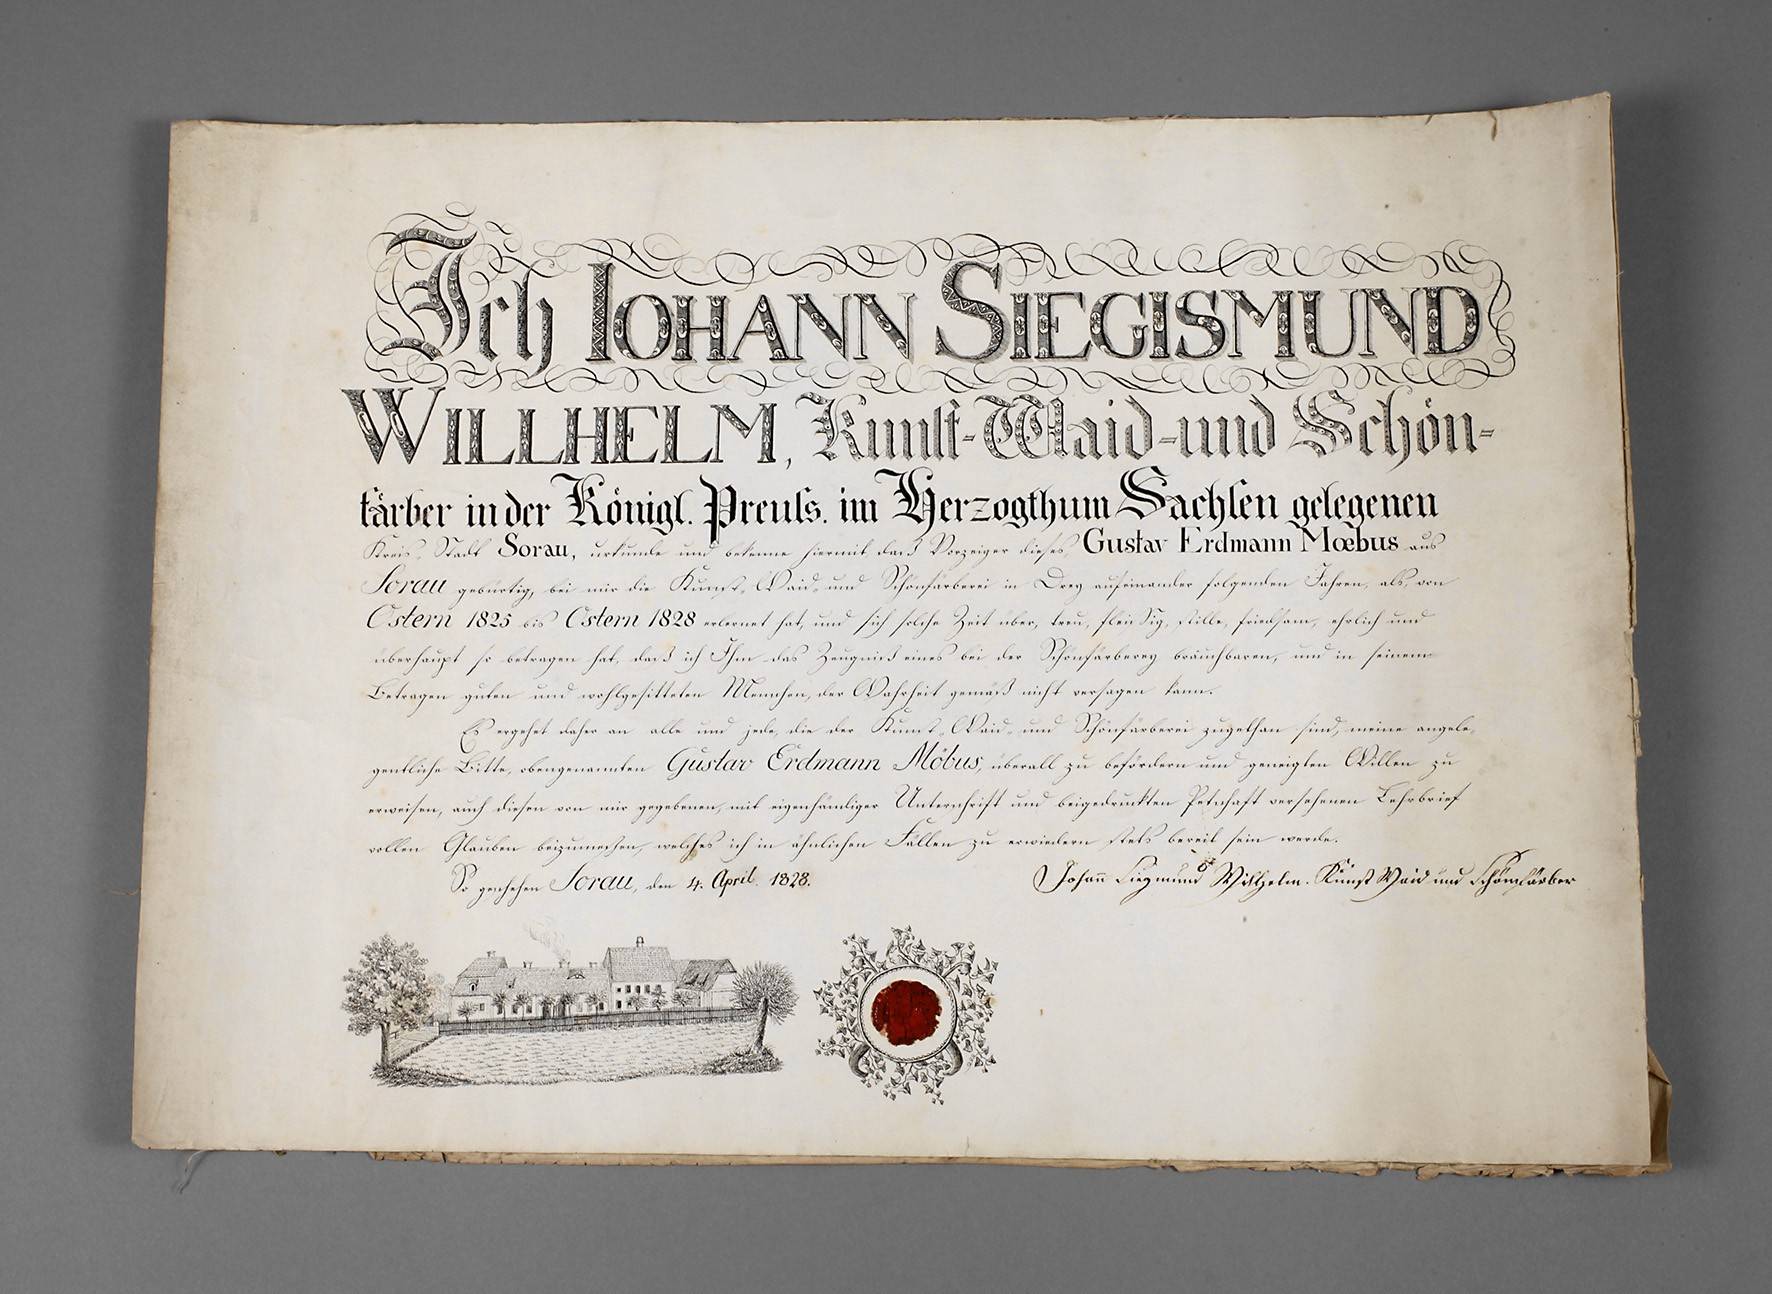 Ich IOHANN SIEGISMUND
WILLHELM, Kunst-Waid-und Schön-
färber in der Königl. Preuſs. im Herzogthum Sachſen gelegenen
Kreis-Stadt Sorau, urkunde und bekenne hiermit daß Vorzeiger dieses, Gustav Erdmann Mœbus aus
Sorau gebürtig, bei mir die Kunst-, Waid- und Schönfärberei in Drey aufeinander folgenden Jahren, als, von
Ostern 1825 bis Ostern 1828 erlernet hat, und sich solche Zeit über, treu, fleißig, stille, friedsam, ehrlich und
überhaupt so betragen hat, daß ich Ihm das Zeugniß eines bei der Schönfärberey bräuchbaren, und in seinem
Betragen guten und wohlgesitteten Menschen, der Wahrheit gemäß nicht versagen kann.
Es ergehet daher an alle und jede, die der Kunst-, Waid- und Schönfärberei zugethan sind, meine angele-
gentliche Bitte, obengenannten Gustav Erdmann Möbus, überall zu befördern und geneigten Willen zu
erweisen, auch diesen von mir gegebenen, mit eigenhändiger Unterschrift und beigedruckten Petschaft versehenen Lehrbrief
vollen Glauben beizumessen, welches ich in ähnlichen Fällen zu erwiedern stets bereit sein werde.
So geschehen Sorau, den 4. April. 1828.
Johann Siegmund Wilhelm. Kunst Waid und Schönfärber